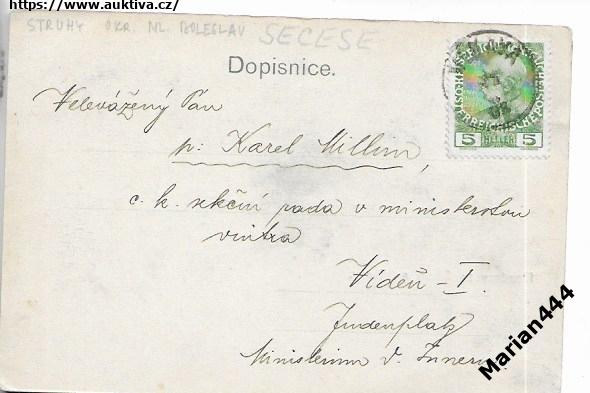 https://www.auktiva.cz/
STRUHY OKR. ML. BOLESLAV SECESE
Dopisnice.
Velevážený Pán
p: Karel Millim,
c. k. sekční rada v ministerstvu
vnitra
Vídeň - I.
Judenplatz
Ministerium d. Innern
5 HELLER 5
Marian444